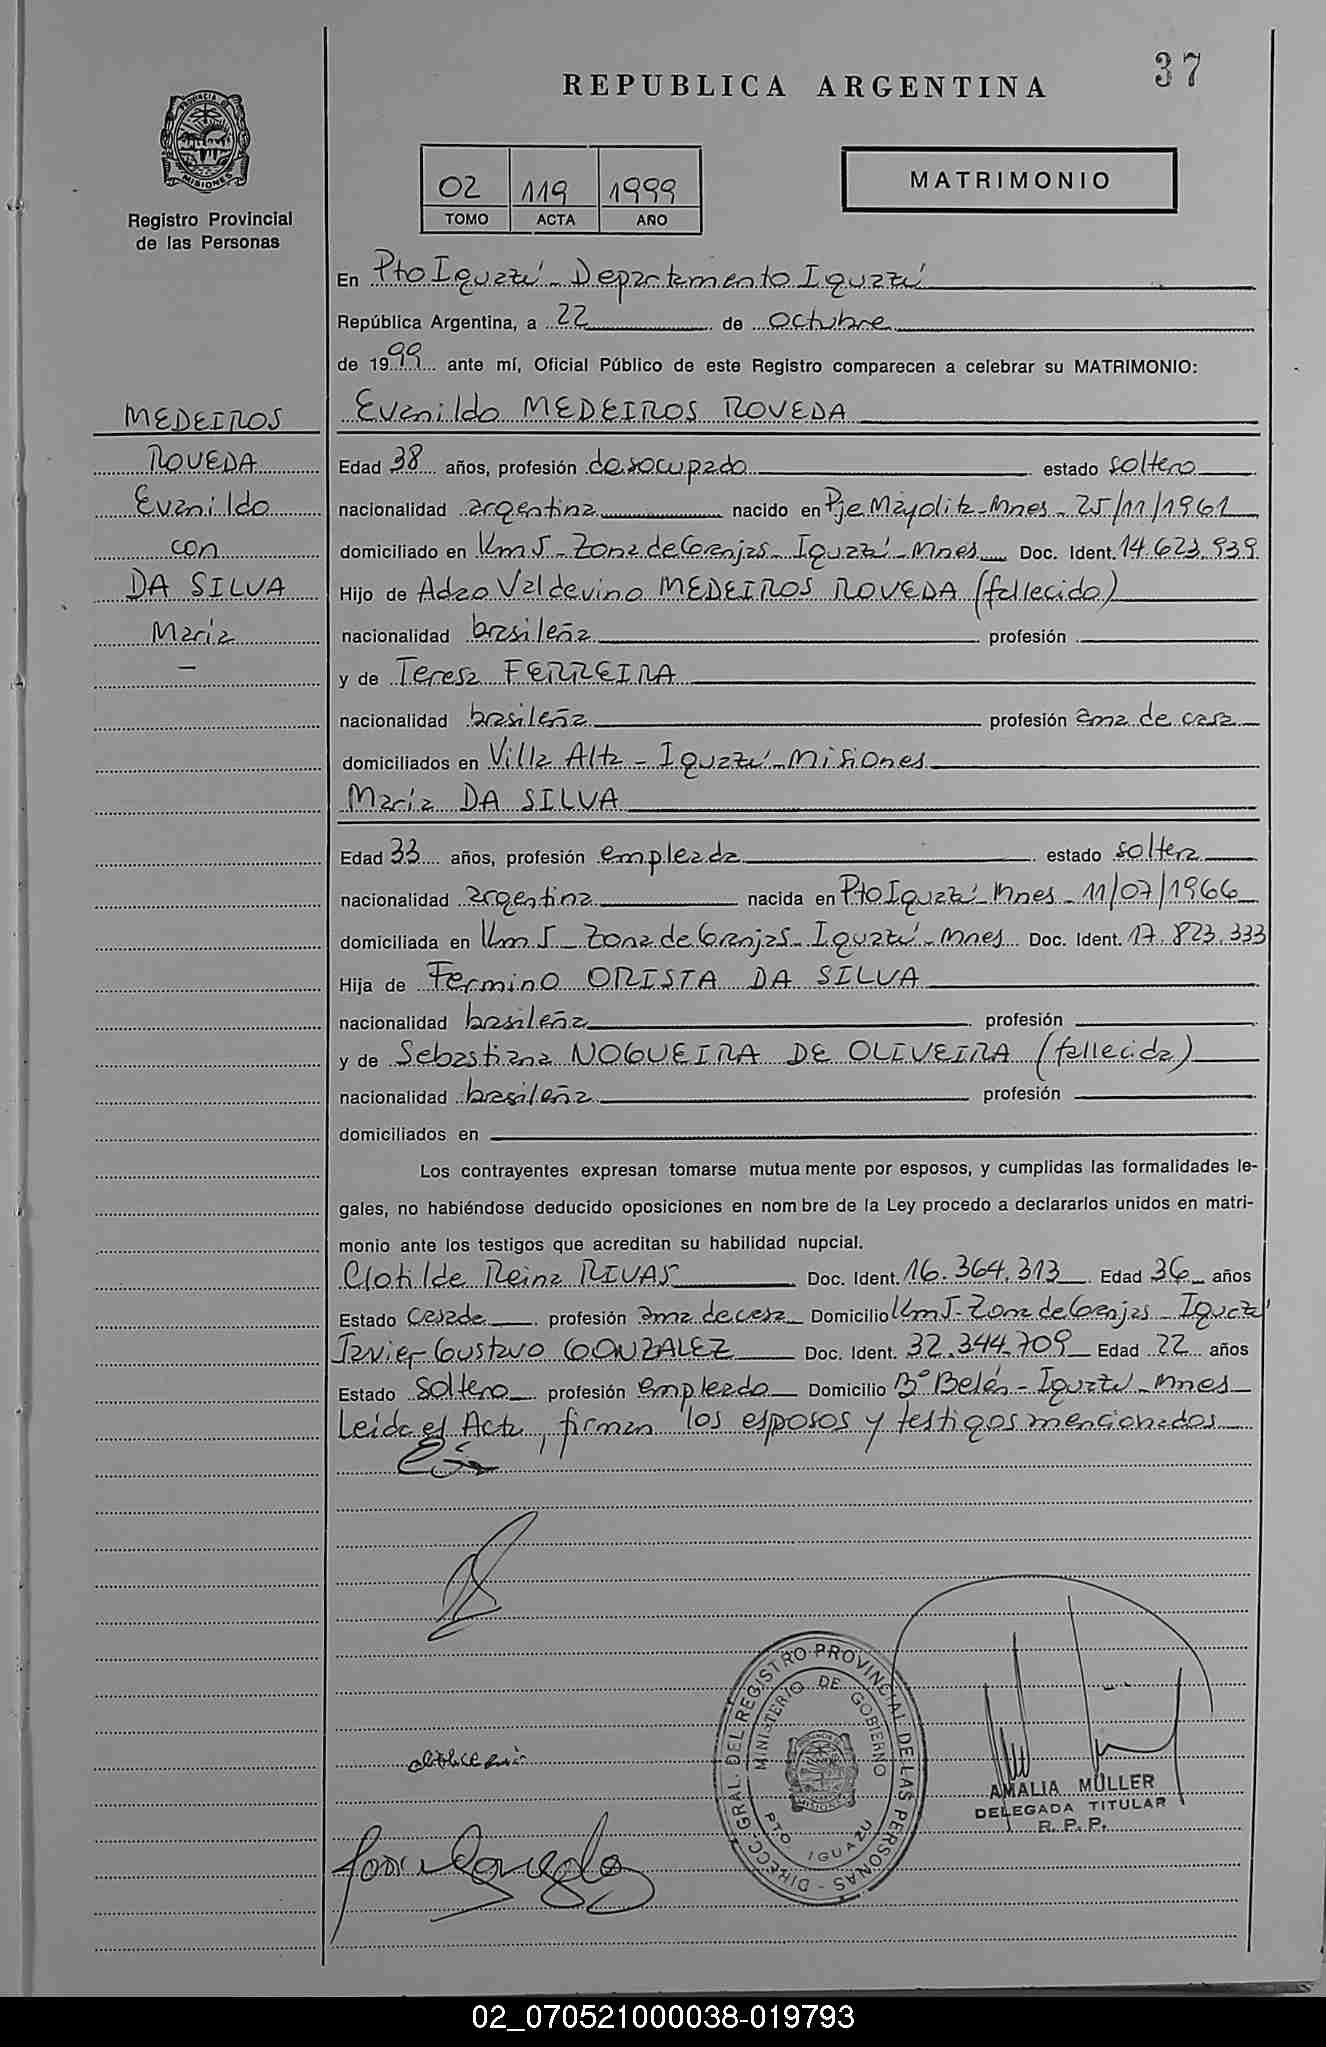 37
REPUBLICA ARGENTINA
PROVINCIA DE
MISIONES
Registro Provincial
de las Personas
02 119 1999
TOMO ACTA AÑO
MATRIMONIO
En Pto Iguazú - Departamento Iguazú
República Argentina, a 22 de octubre
de 1999 ante mí, Oficial Público de este Registro comparecen a celebrar su MATRIMONIO:
MEDEIROS
ROVEDA
Evanildo
con
DA SILVA
Maria
-
Evanildo MEDEIROS ROVEDA
Edad 38 años, profesión desocupado estado soltero
nacionalidad argentina nacido en Pje Mayolita - Mnes - 25/11/1961
domiciliado en Km 5 - Zona de Granjas - Iguazú - Mnes Doc. Ident. 14.623.939
Hijo de Adao Valdevino MEDEIROS ROVEDA (fallecido)
nacionalidad brasileña profesión
y de Teresa FERREIRA
nacionalidad brasileña profesión ama de casa
domiciliados en Villa Alta - Iguazú - Misiones
Maria DA SILVA
Edad 33 años, profesión empleada estado soltera
nacionalidad argentina nacida en Pto Iguazú - Mnes - 11/07/1966
domiciliada en Km 5 - Zona de Granjas - Iguazú - Mnes Doc. Ident. 17.823.333
Hija de Fermino ORISTA DA SILVA
nacionalidad brasileña profesión
y de Sebastiana NOGUEIRA DE OLIVEIRA (fallecida)
nacionalidad brasileña profesión
domiciliados en
Los contrayentes expresan tomarse mutuamente por esposos, y cumplidas las formalidades le-
gales, no habiéndose deducido oposiciones en nombre de la Ley procedo a declararlos unidos en matri-
monio ante los testigos que acreditan su habilidad nupcial.
Clotilde Reina RIVAS Doc. Ident. 16.364.313 Edad 36 años
Estado casada profesión ama de casa Domicilio Km 5 - Zona de Granjas - Iguazú
Javier Gustavo GONZALEZ Doc. Ident. 32.344.709 Edad 22 años
Estado soltero profesión empleado Domicilio B° Belén - Iguazú - Mnes
Leída el Acta, firman los esposos y testigos mencionados
DIRECC. GRAL. DEL REGISTRO PROVINCIAL DE LAS PERSONAS -
MINISTERIO DE GOBIERNO
PTO. IGUAZU
AMALIA MÜLLER
DELEGADA TITULAR
R. P. P.
02_070521000038-019793